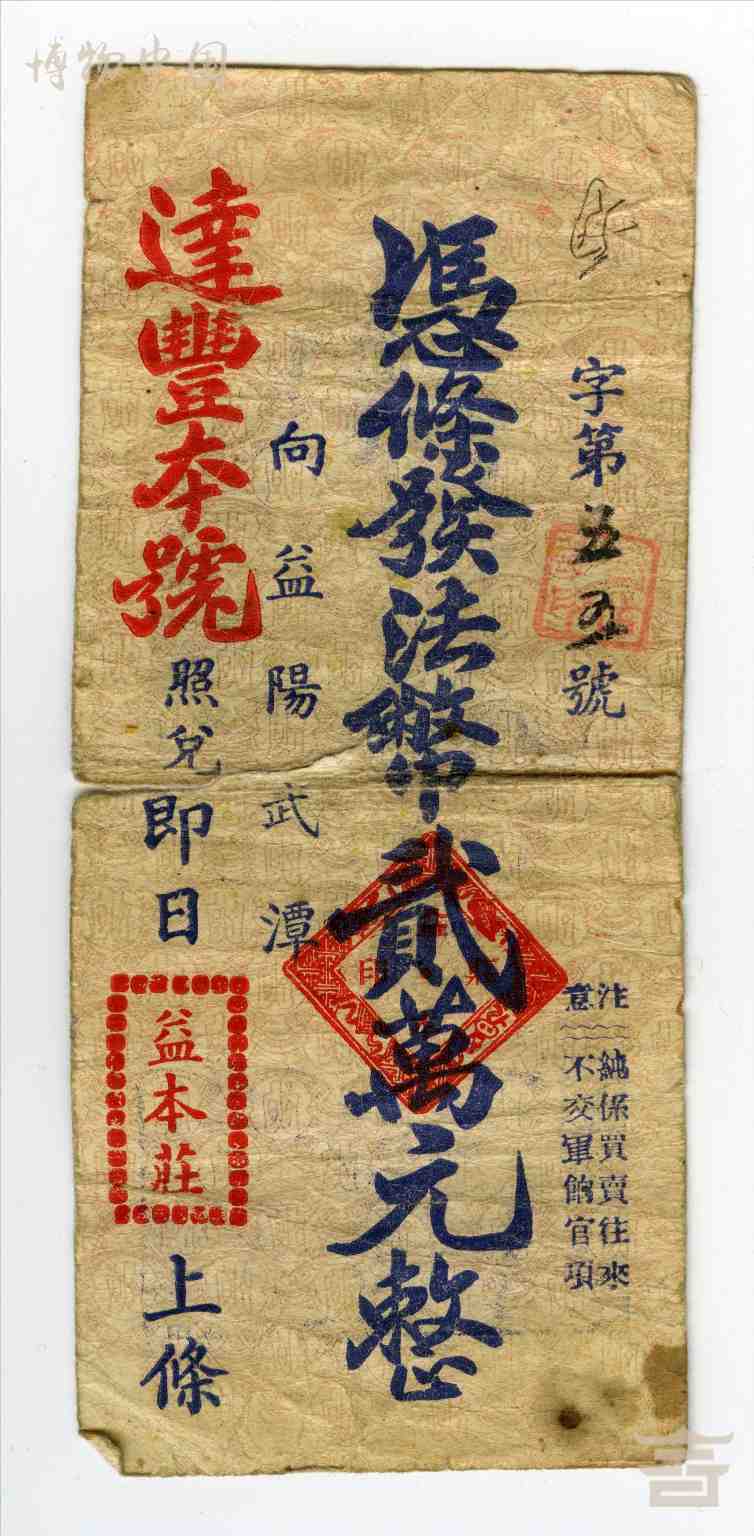 博物中国
字第五五號
注意
純保買賣往來
不交軍餉官項
憑條發法幣貳萬元整
向益陽武潭
達豐本號
照兌即日
益本莊
上條